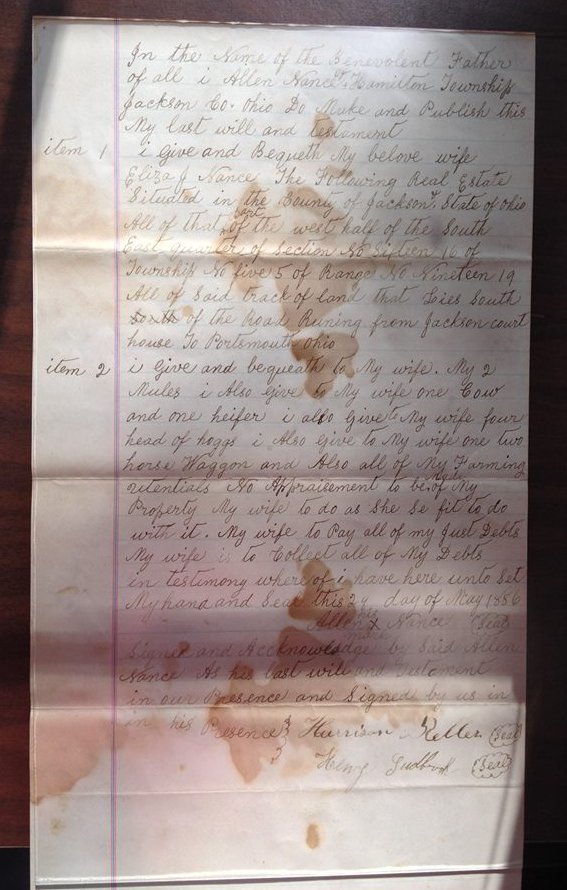 In the Name of the Benevolent Father
of all i Allen Nance Hamilton Township
Jackson Co. Ohio Do Make and Publish this
My last will and testament
item 1 i Give and Bequeth My belove wife
Eliza J Nance The Following Real Estate
Situated in the County of Jackson State of ohio
All of that part of the west half of the South
East quarter of Section No Sixteen 16 of
Township No five 5 of Range No Nineteen 19
All of Said track of land that Loies South
South of the Road Runing from Jackson court
house To Portsmouth ohio
item 2 i Give and bequeath to My wife. My 2
Mules i Also Give to My wife one Cow
and one heifer i also Give to My wife four
head of hoggs i Also Give to My wife one two
horse Waggon and Also all of My Farming
utentials No Appraisement to be of My
Property My wife to do as She Se fit to do
with it. My wife to Pay all of my Just Debts
My wife is to Collect all of My Debts
in testimony where of i have here unto Set
My hand and Seal this 29 day of May 1886
Allen X Nance Seal
mark
Signed and Accknowledge by Said Allen
Nance As his last will and Testament
in our Presence and Signed by us in
in his Presence Harrison Keller Seal
Henry Seal